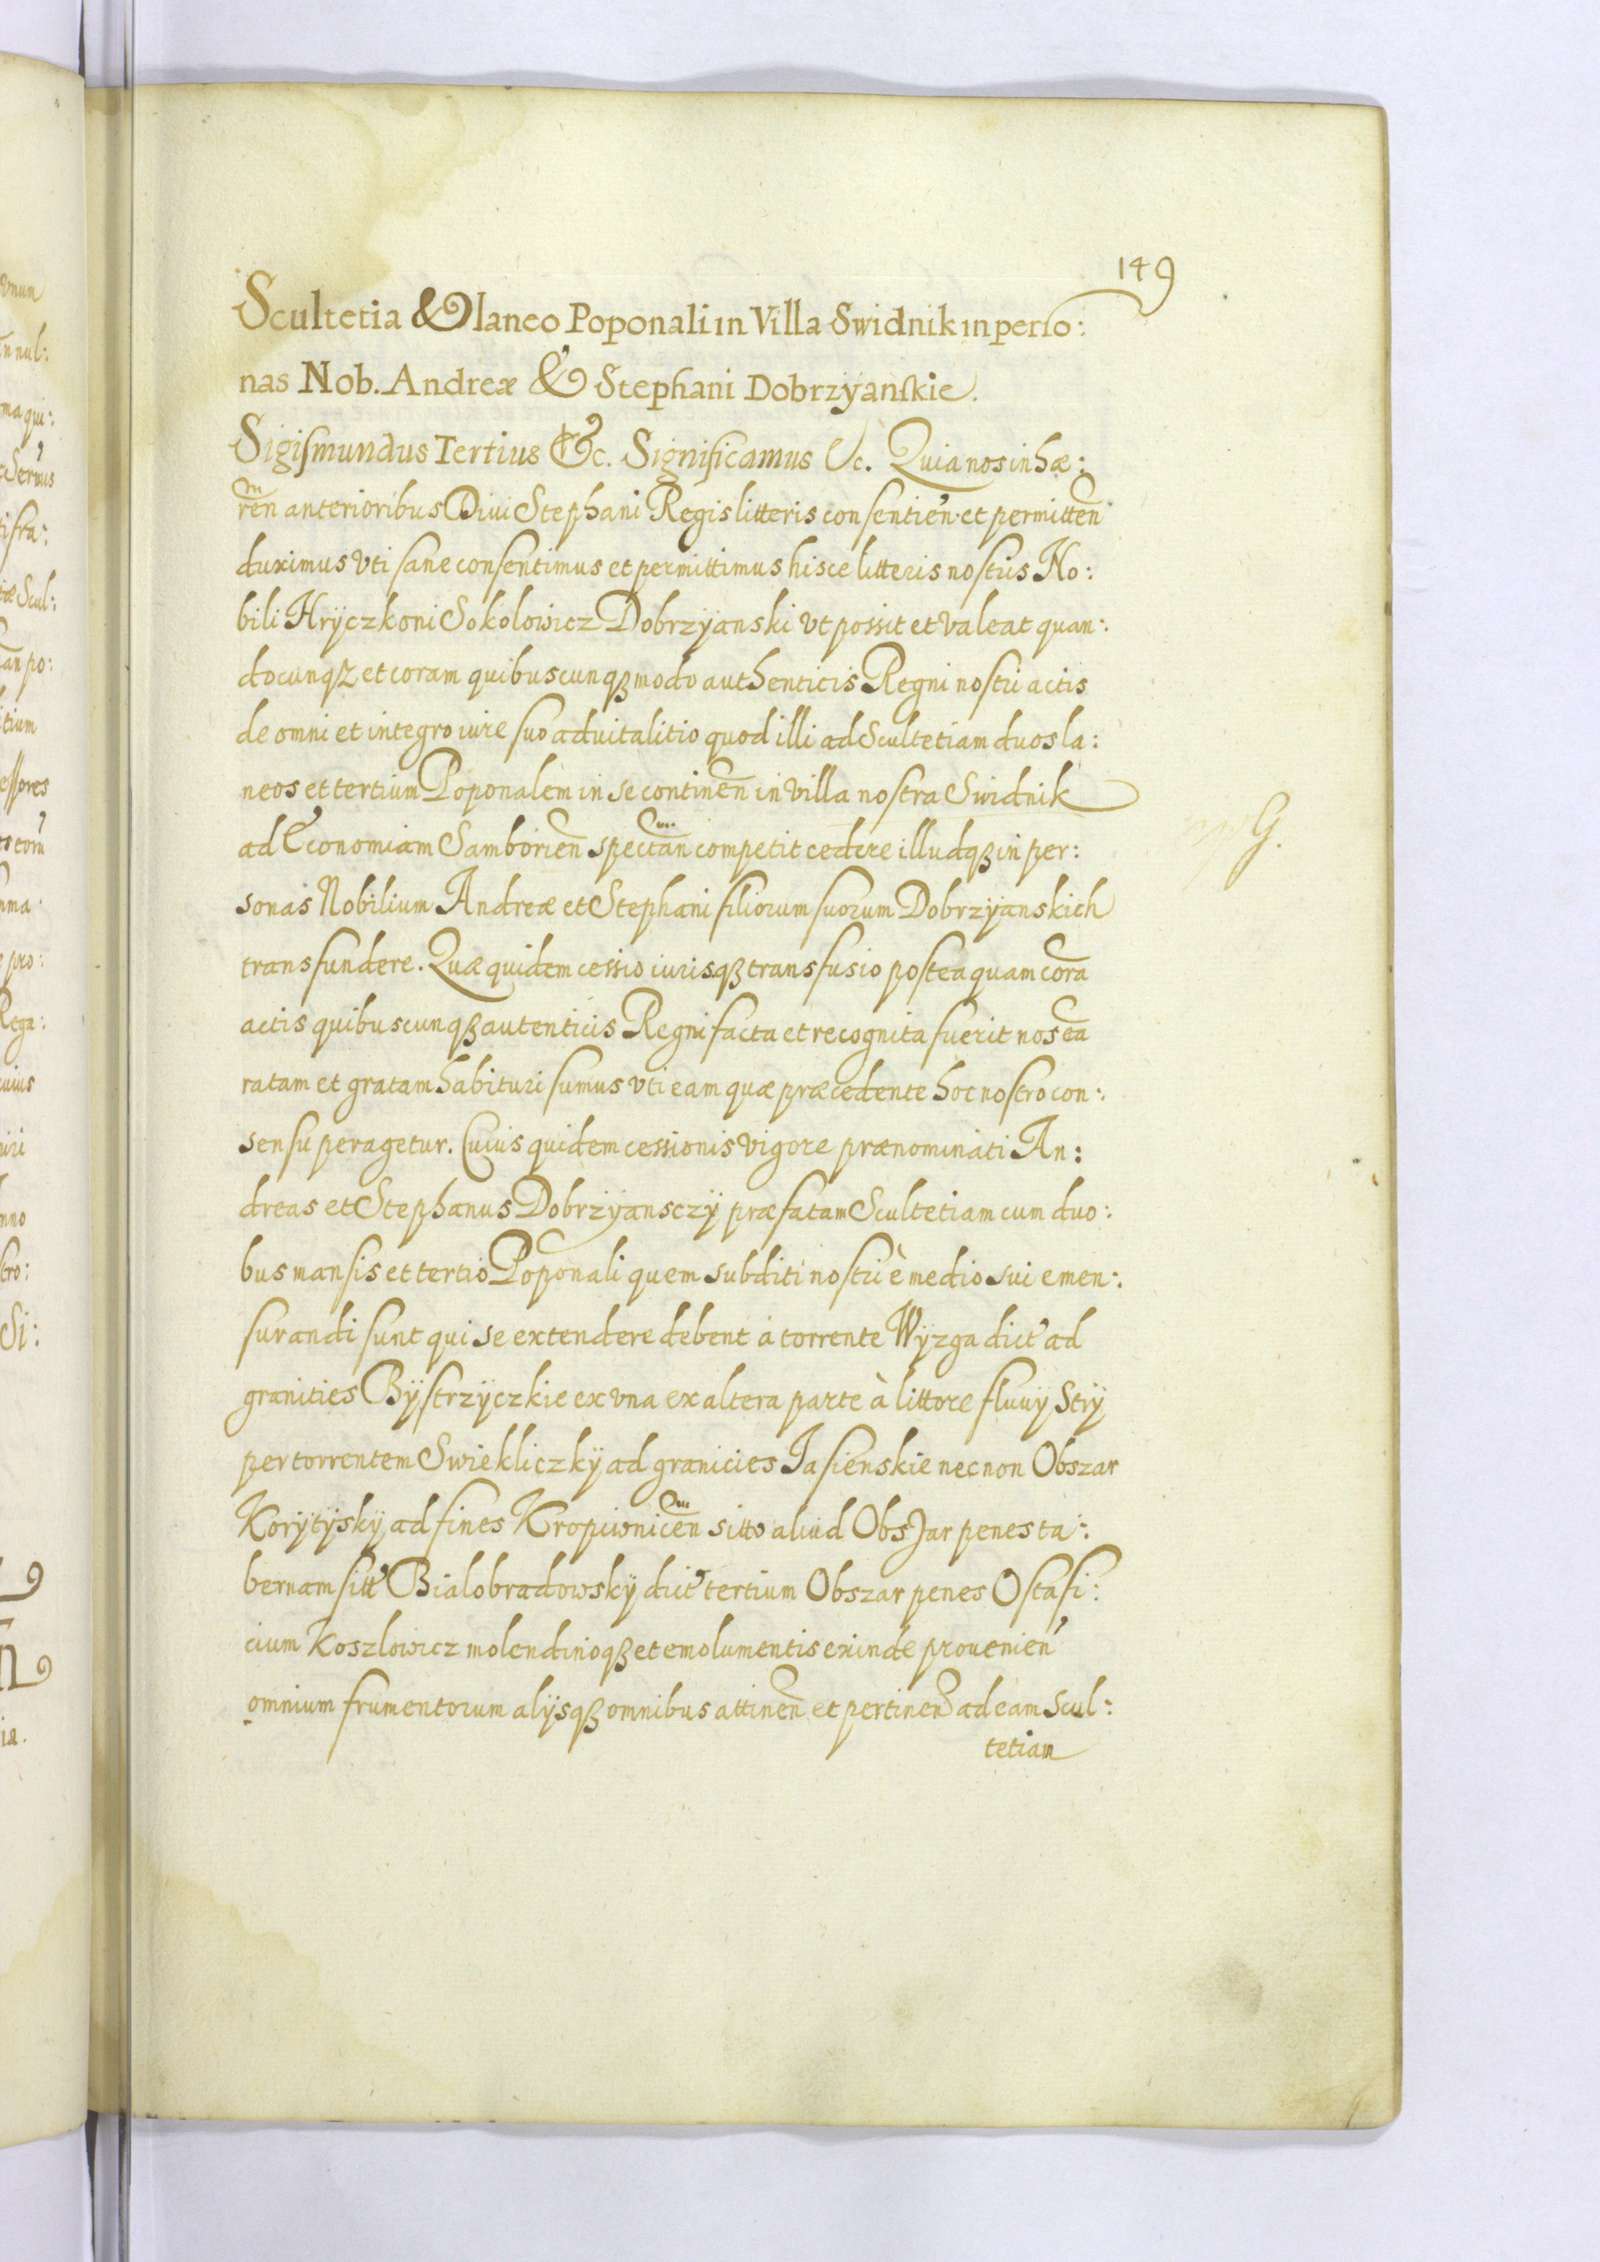 149
Scultetia & laneo Poponali in Villa Swidnik in perso:
nas Nob. Andreæ & Stephani Dobrzÿanskie.
Sigismundus Tertius &c. Significamus &c. Quia nos in hæ:
ren anterioribus Diui Stephani Regis litteris consentien et permitten
duximus vti sane consentimus et permittimus hisce litteris nostris No:
bili Hrÿczkoni Sokolowicz Dobrzÿanski vt possit et valeat quan:
docunqꝫ et coram quibuscunqꝫ modo authenticis Regni nostri actis
de omni et integro iure suo aduitalitio quod illi ad Scultetiam duos la:
neos et tertium Poponalem in se continen in villa nostra Swidnik
ad Œconomiam Samborien spectan competit cedere illudqꝫ in per:
sonas Nobilium Andreæ et Stephani filiorum suorum Dobrzÿanskich
transfundere. Quæ quidem cessio iurisqꝫ transfusio postea quam cora
actis quibuscunqꝫ autenticis Regni facta et recognita fuerit nos ea
ratam et gratam habituri sumus vti eam quæ præcedente hoc nostro con:
sensu peragetur. Cuius quidem cessionis vigore prænominati An:
dreas et Stephanus Dobrzÿansczÿ præfatam Scultetiam cum duo:
bus mansis et tertio Poponali quem subditi nostri è medio sui emen:
surandi sunt qui se extendere debent à torrente Wÿzga dict ad
granities Bÿstrzÿczkie ex vna ex altera parte à littore fluuÿ Strÿ
per torrentem Swiekliczkÿ ad granicies Jasienskie necnon Obszar
Korÿtÿskÿ ad fines Kropiwnicen sitto aliud Obszar penes ta:
bernam sitt Bialobradowskÿ dict tertium Obszar penes Ostasi:
cium Koszlowicz molendinoqꝫ et emolumentis exinde prouenien
omnium frumentorum alÿsqꝫ omnibus attinen et pertinen ad eam Scul:
tetiam